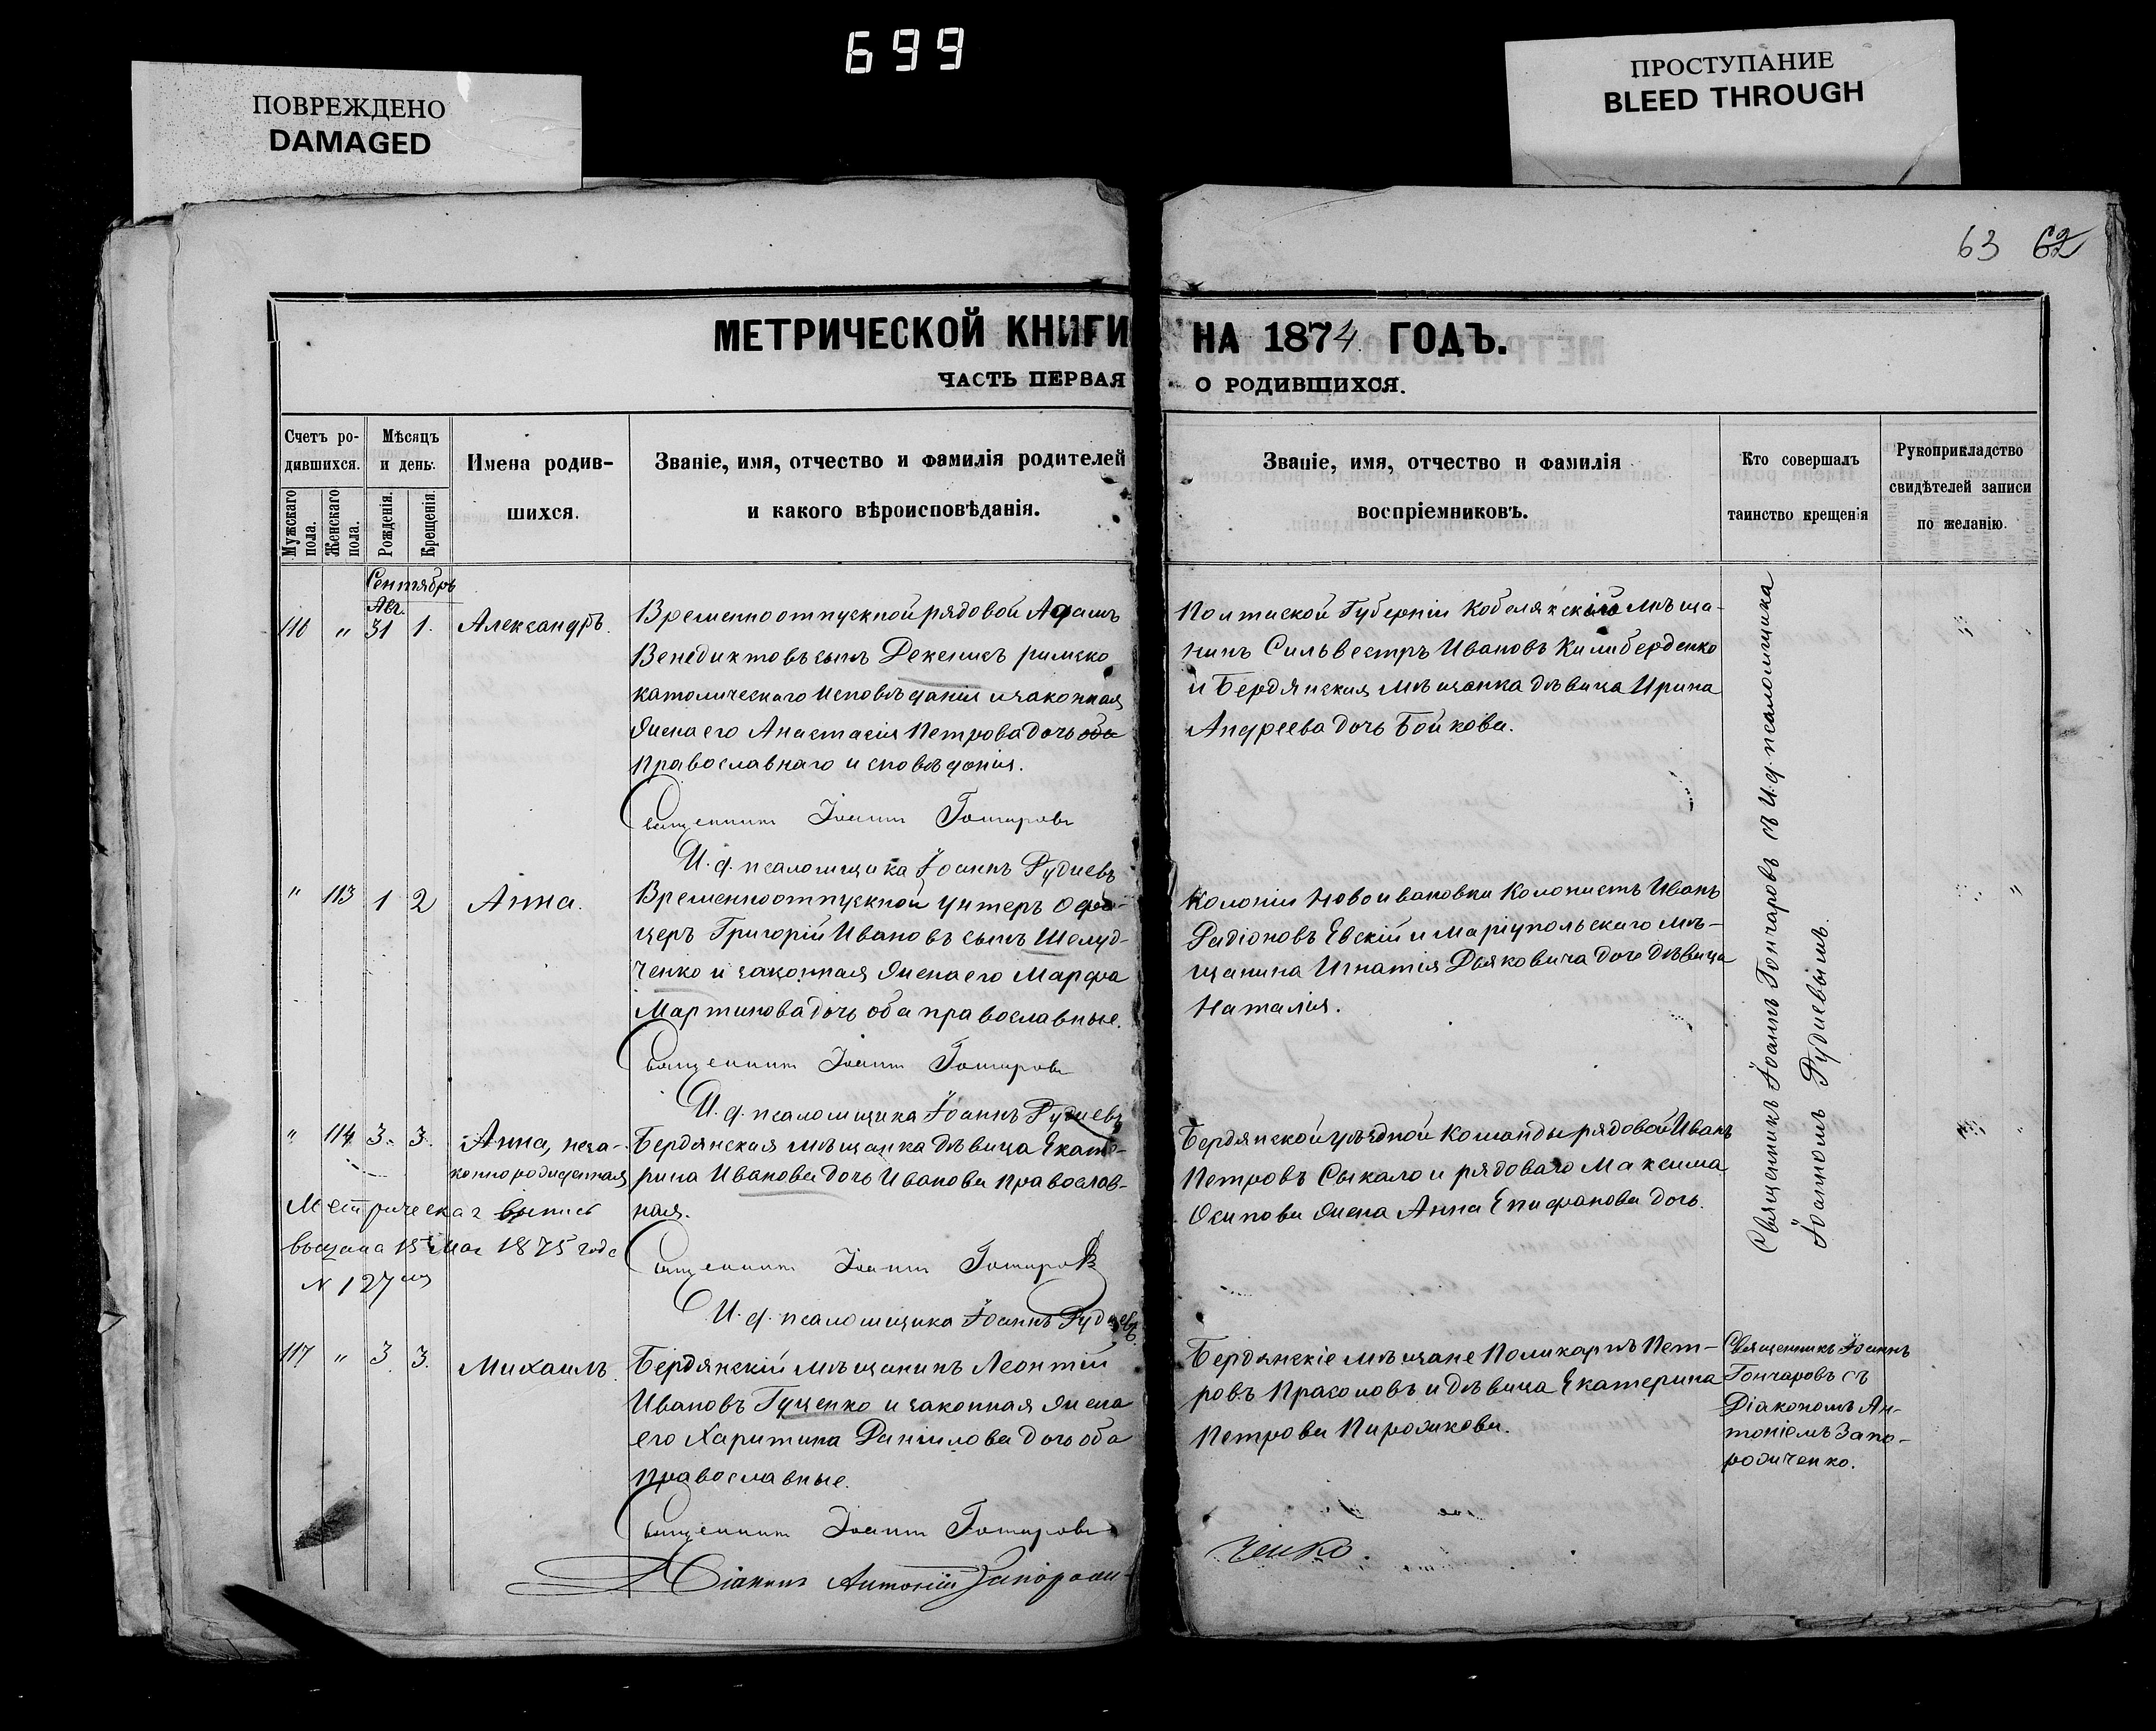 699
ПОВРЕЖДЕНО
DAMAGED
ПРОСТУПАНИЕ
BLEED THROUGH
63 62
МЕТРИЧЕСКОЙ КНИГИ НА 1874 ГОДЪ.
ЧАСТЬ ПЕРВАЯ О РОДИВШИХСЯ.
Счетъ ро-
дившихся.
Мужскаго пола.
Женскаго пола.
Мѣсяцъ
и день.
Рожденія.
Крещенія.
Имена родив-
шихся.
Званіе, имя, отчество и фамилія родителей
и какого вѣроисповѣданія.
Званіе, имя, отчество и фамилія
воспріемниковъ.
Кто совершалъ
таинство крещенія
Рукоприкладство
свидѣтелей записи
по желанію.
Сентябрь
Авг.
116 " 31 1. Александръ.
Временноотпускной рядовой Адамъ
Венедиктовъ сынъ римско
католическаго исповѣданія и законная
жена его Анастасія Петрова дочь оба
православнаго исповѣданія.
Священникъ Іоаннъ Гончаровъ
И. д. псаломщика Іоаннъ Рудиевъ
Полтавской Губерніи Кобелякскій мѣща-
нинъ Сильвестръ Ивановъ Килиберденко
и Бердянская мѣщанка дѣвица Ирина
Андреева дочь Бойкова.
Священникъ Іоаннъ Гончаровъ съ И. д. псаломщика
Іоанномъ Рудиевымъ.
" 113 1 2 Анна.
Временноотпускной унтеръ офи-
церъ Григорій Ивановъ сынъ Шелуд-
ченко и законная жена его Марфа
Мартинова дочь оба православные.
Священникъ Іоаннъ Гончаровъ
И. д. псаломщика Іоаннъ Рудиевъ
Колоніи Новоивановки колонистъ Иванъ
Радіоновъ Евскій и Маріупольскаго мѣ-
щанина Игнатія Дьяковича дочь дѣвица
Наталія.
" 114 3. 3. Анна, неза-
коннорожденная
Метрическая выпись
выдана 15 Мая 1875 года
N 127
Бердянская мѣщанка дѣвица Екате-
рина Иванова дочь Иванова православ-
ная.
Священникъ Іоаннъ Гончаровъ
И. д. псаломщика Іоаннъ Рудиевъ
Бердянской уѣздной команды рядовой Иванъ
Петровъ Сыкало и рядоваго Максима
Осипова жена Анна Епифанова дочь.
117 " 3 3. Михаилъ.
Бердянскій мѣщанинъ Леонтій
Ивановъ Гуценко и законная жена
его Харитина Даніилова дочь оба
православные.
Священникъ Іоаннъ Гончаровъ
Діаконъ Антоній Запорожи-
ченко.
Бердянскіе мѣщане Поликарпъ Пет-
ровъ Прасоловъ и дѣвица Екатерина
Петрова Пирожкова.
Священникъ Іоаннъ
Гончаровъ съ
Діакономъ Ан-
тоніемъ Запо-
рожченко.